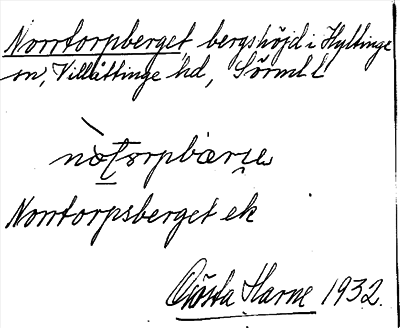 Norrtorpberget, bergshöjd i Hyltinge
sn, Villåttinge hd, Sörml. L
nòtorpbærje
Norrtorpsberget ek
Gösta Harne 1932.